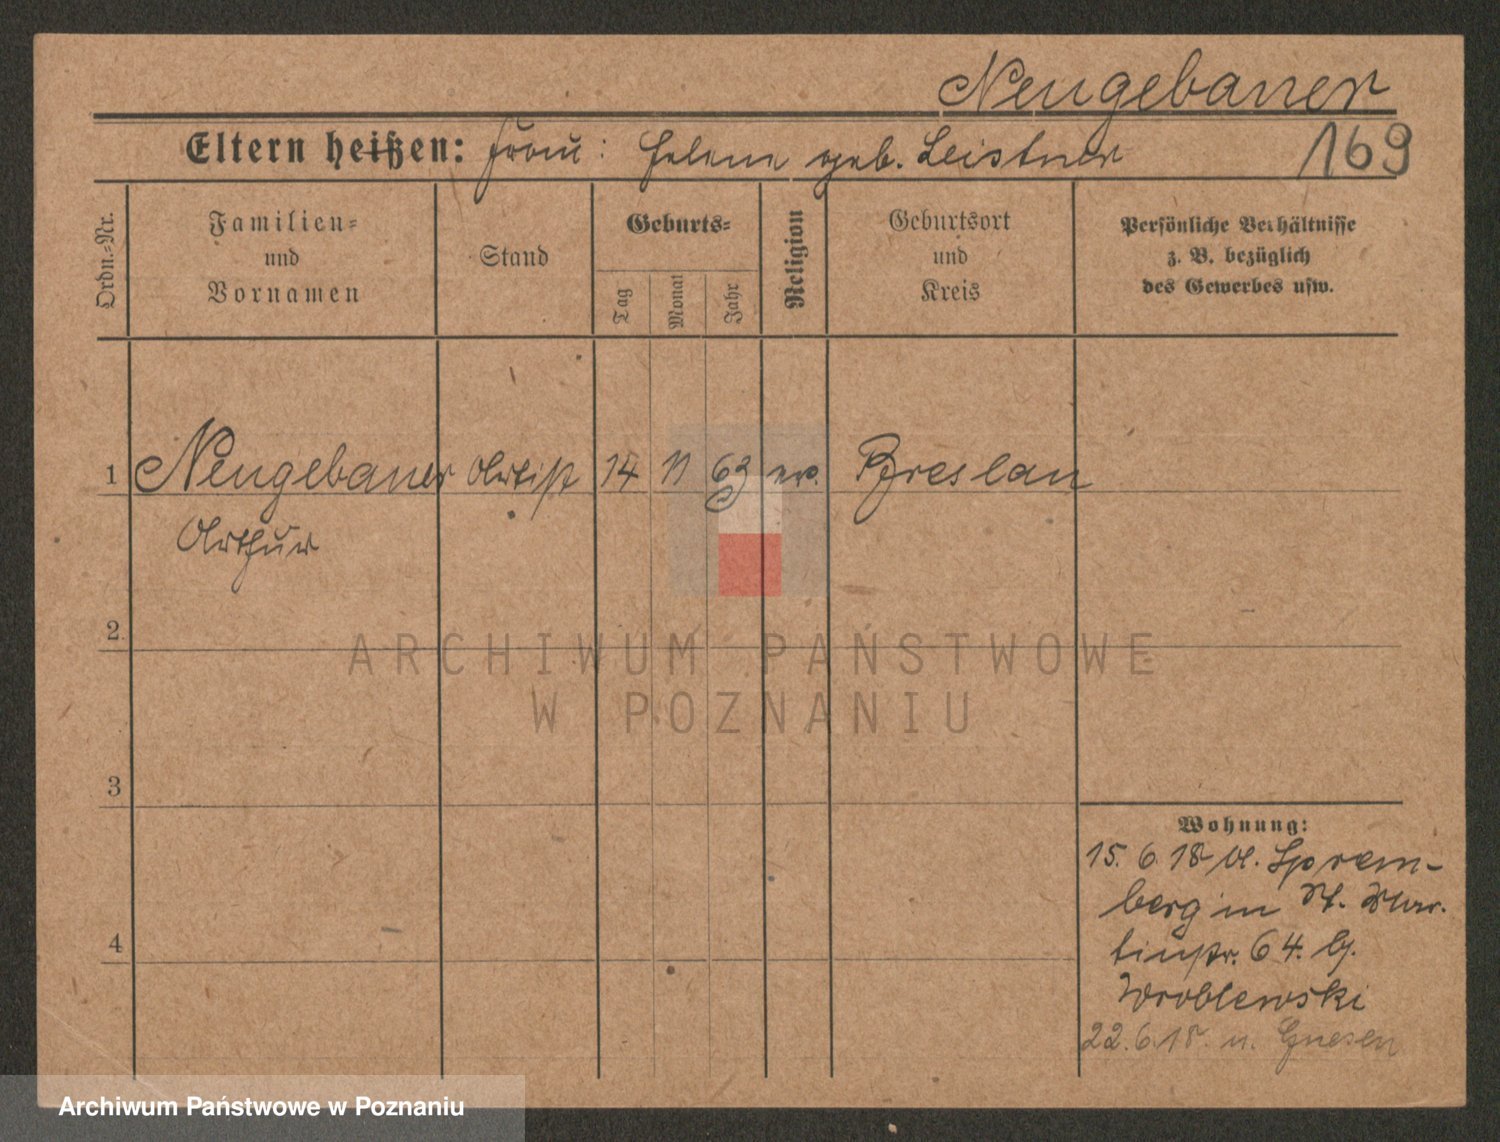 Neugebauer
Eltern heißen: Frau: Helene geb. Leistner 169
Ordn.-Nr.
Familien-
und
Vornamen
Stand
Geburts-
Tag
Monat
Jahr
Religion
Geburtsort
und
Kreis
Persönliche Verhältnisse
z. B. bezüglich
des Gewerbes usw.
1 Neugebauer Artist 14 11 63 ev. Breslau
Arthur
2
ARCHIWUM PAŃSTWOWE
W POZNANIU
3
4
Wohnung:
15. 6. 18 v. Sprem-
berg in St. Mar-
tinstr. 64. b.
Wroblewski
22. 6. 18. n. Gnesen
Archiwum Państwowe w Poznaniu